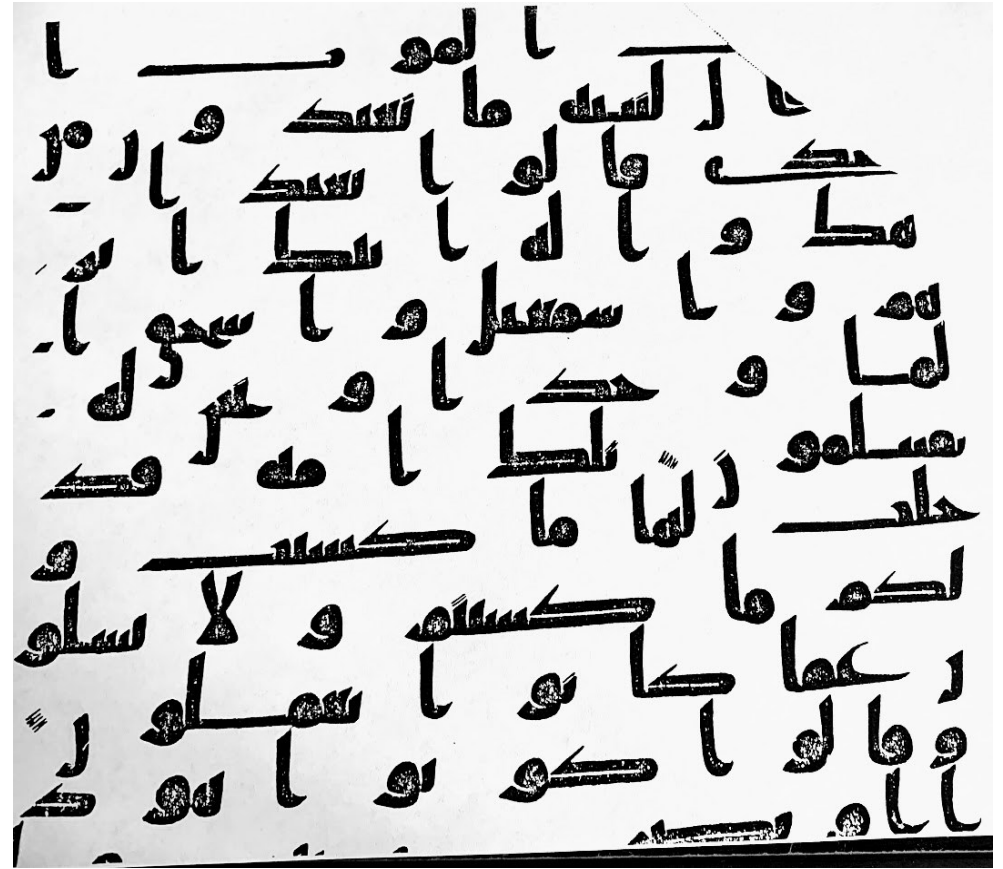 ب الموت ا
ذ قال لبنيه ما تعبدون من
بعدي قالوا نعبد ال
هك واله ابائك ابر
هم واسمعيل واسحق ا
لها وحدا ونحن له
مسلمون تلك امه قد
خلت لها ما كسبت و
لكم ما كسبتم ولا تسئلو
ن عما كانوا يعملون
وقالوا كونوا هود
ا او نصر